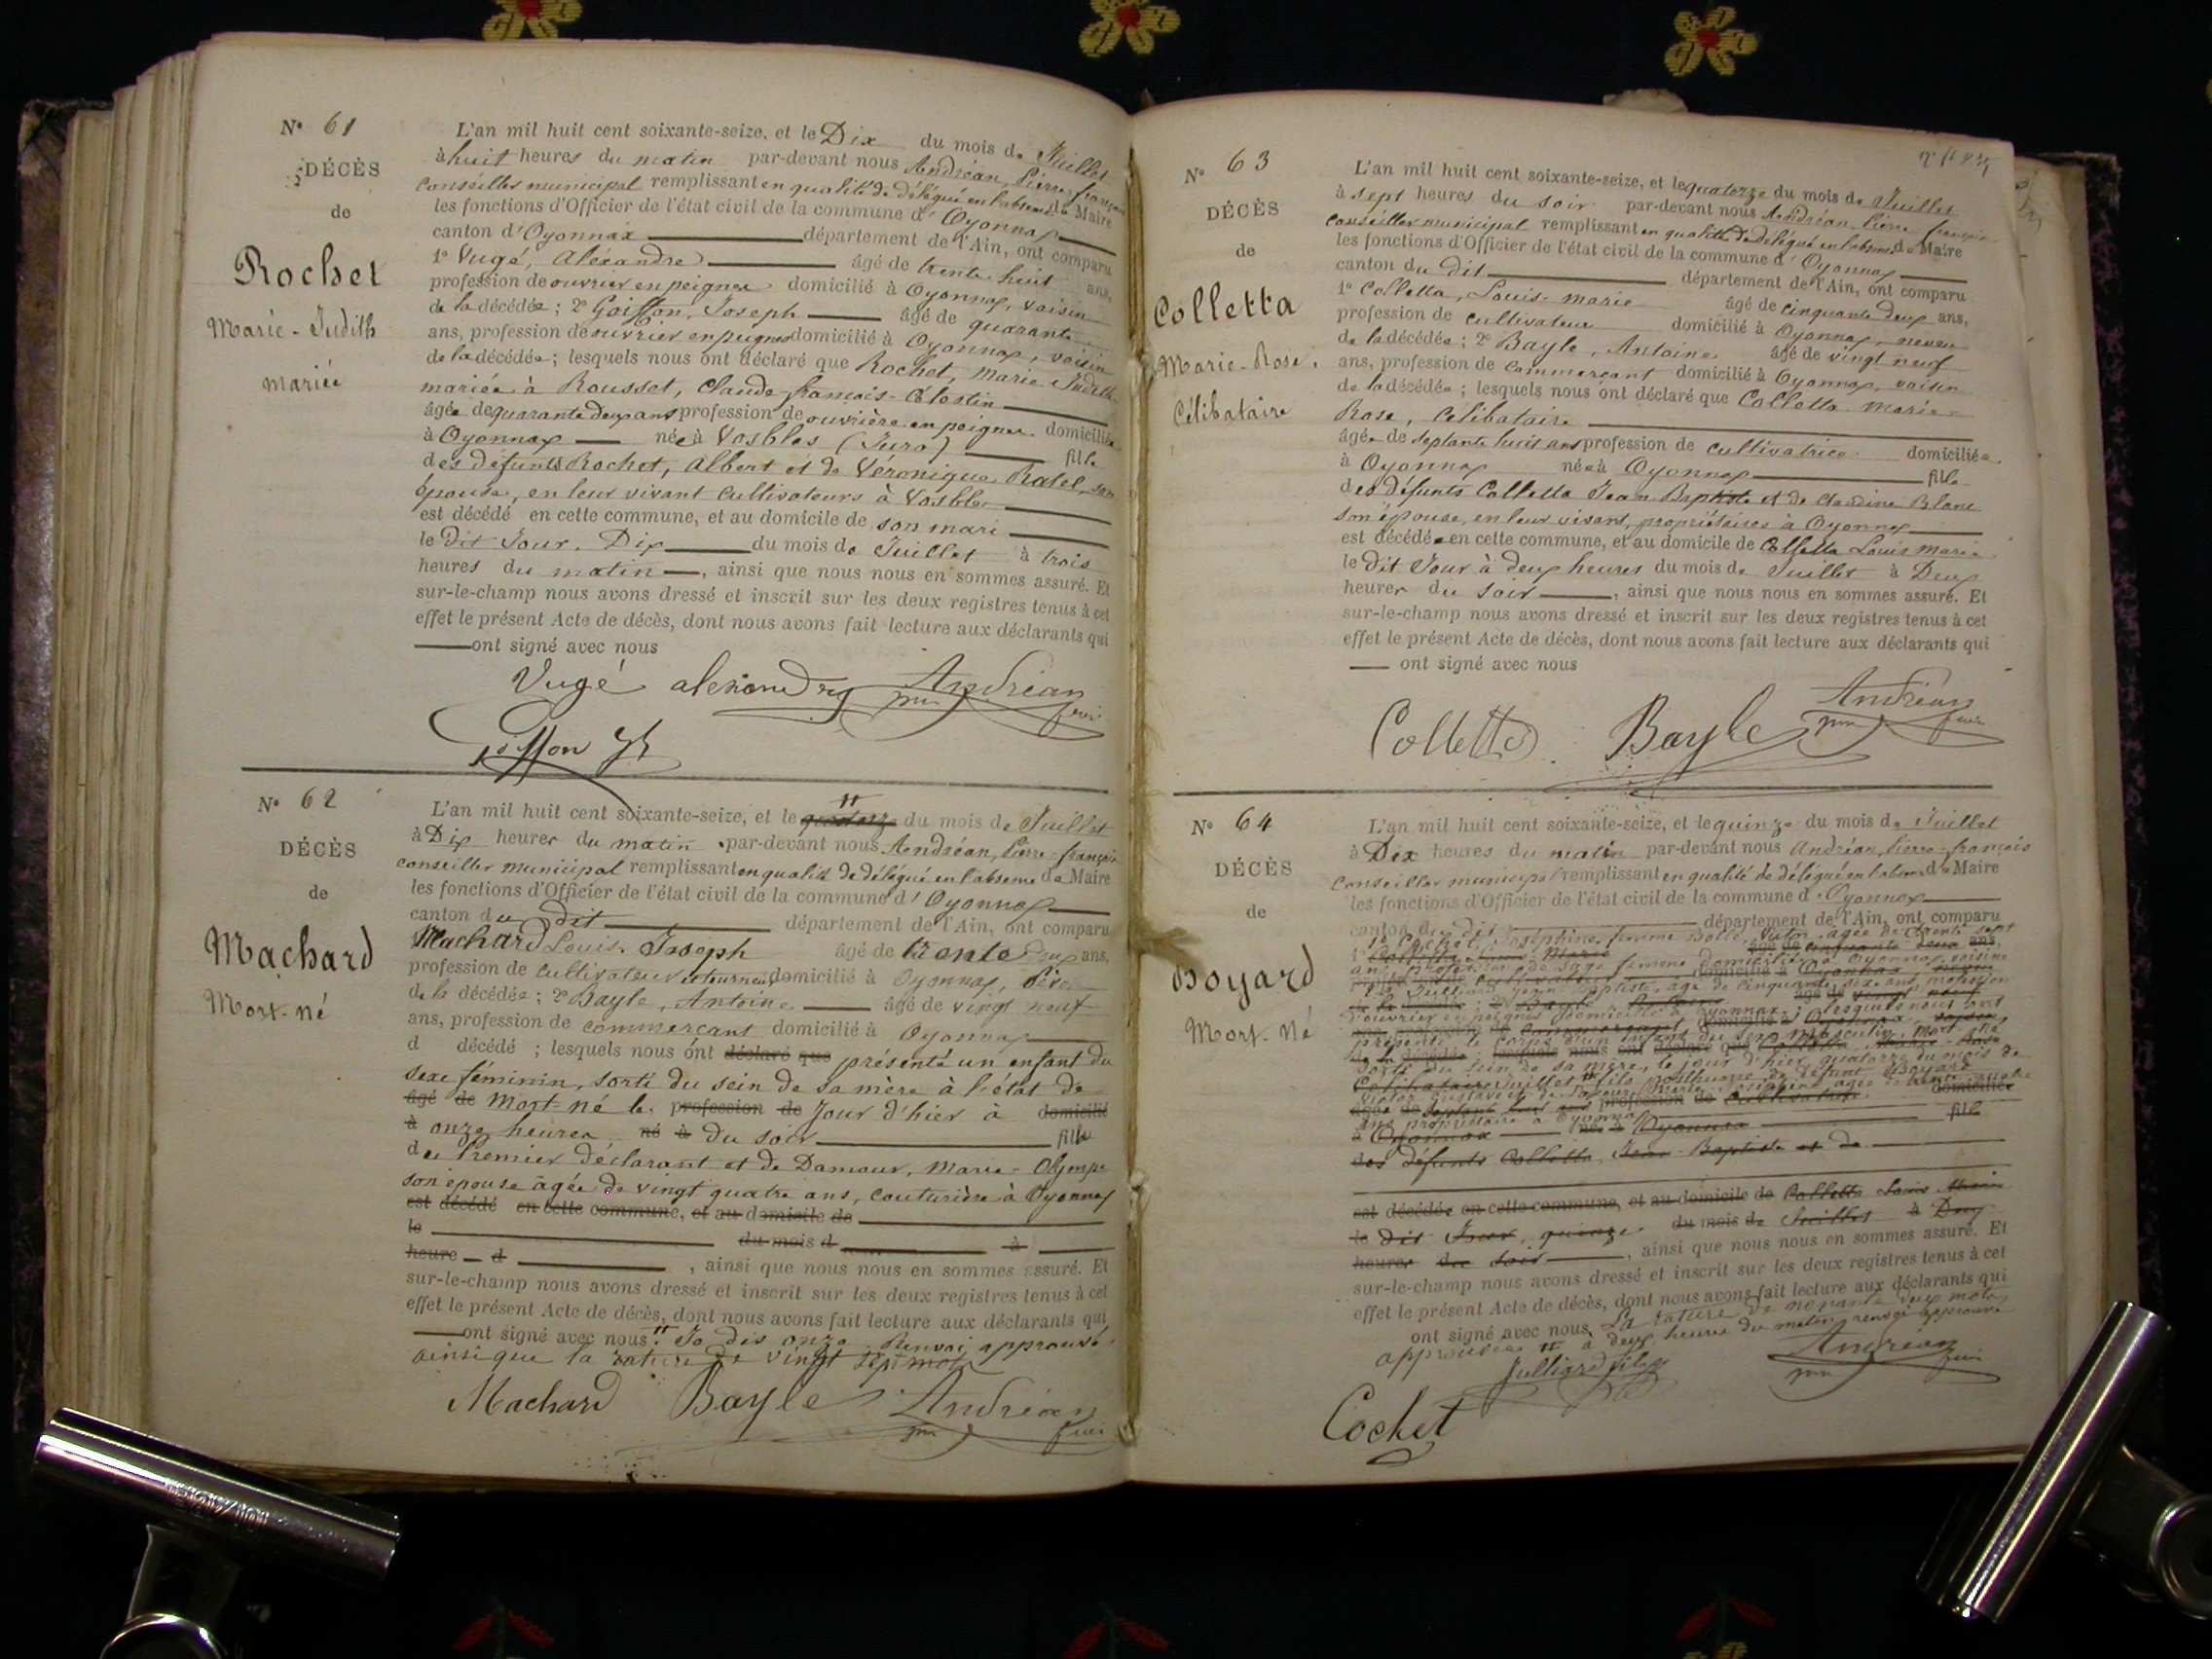 N° 61
DÉCÈS
de
Rochet
Marie-Judith
mariée
L'an mil huit cent soixante-seize, et le Dix du mois de Juillet
à huit heures du matin par-devant nous Andréan, Pierre-françois
conseiller municipal remplissant en qualité de délégué en l'absence de Maire
les fonctions d'Officier de l'état civil de la commune d'Oyonnax
canton d'Oyonnax département de l'Ain, ont comparu
1° Vugé, Aléxandre âgé de trente huit ans,
profession de ouvrier en peignes domicilié à Oyonnax, voisin
de la décédée; 2° Goiffon, Joseph âgé de quarante
ans, profession de ouvrier en peignes domicilié à Oyonnax, voisin
de la décédée; lesquels nous ont déclaré que Rochet, Marie Judith
mariée à Rousset, Claude-françois-Célestin
âgée de quarante deux ans profession de ouvrière en peignes domiciliée
à Oyonnax née à Vosbles (Jura) fille
des défunts Rochet, Albert et de Véronique Ratel, son
épouse, en leur vivant cultivateurs à Vosbles
est décédé en cette commune, et au domicile de son mari
le dit Jour, Dix du mois de Juillet à trois
heures du matin, ainsi que nous nous en sommes assuré. Et
sur-le-champ nous avons dressé et inscrit sur les deux registres tenus à cet
effet le présent Acte de décès, dont nous avons fait lecture aux déclarants qui
ont signé avec nous
Vugé alexandre Andréan
N° 62
DÉCÈS
de
Machard
Mort-né
L'an mil huit cent soixante-seize, et le quatorze du mois de Juillet
à Dix heures du matin par-devant nous Andréan, Pierre-françois
conseiller municipal remplissant en qualité de délégué en l'absence de Maire
les fonctions d'Officier de l'état civil de la commune d'Oyonnax
canton du dit département de l'Ain, ont comparu
Machard Louis-Joseph âgé de trente deux ans,
profession de cultivateur et tourneur domicilié à Oyonnax, Père
de la décédée; 2° Bayle, Antoine âgé de vingt neuf
ans, profession de commerçant domicilié à Oyonnax
d décédé; lesquels nous ont déclaré que présenté un enfant du
sexe féminin, sorti du sein de sa mère à l'état de
âgé de Mort-né le profession de Jour d'hier à domicilié
à onze heures, né à du soir fille
du Premier déclarant et de Damour, Marie-Olympe
son épouse âgée de vingt quatre ans, couturière à Oyonnax
est décédé en cette commune, et au domicile de
le du mois d à
heure d, ainsi que nous nous en sommes assuré. Et
sur-le-champ nous avons dressé et inscrit sur les deux registres tenus à cet
effet le présent Acte de décès, dont nous avons fait lecture aux déclarants qui
ont signé avec nous. Je dis onze Renvoi approuvé
ainsi que la rature de vingt sept mots
Machard Bayle Andréan
N° 63
DÉCÈS
de
Colletta
Marie-Rose
Célibataire
L'an mil huit cent soixante-seize, et le quatorze du mois de Juillet
à sept heures du soir par-devant nous Andréan, Pierre françois
conseiller municipal remplissant en qualité de délégué en l'absence de Maire
les fonctions d'Officier de l'état civil de la commune d'Oyonnax
canton du dit département de l'Ain, ont comparu
1° Colletta, Louis-marie âgé de cinquante deux ans,
profession de cultivateur domicilié à Oyonnax, neveu
de la décédée; 2° Bayle, Antoine âgé de vingt neuf
ans, profession de commerçant domicilié à Oyonnax, voisin
de la décédée; lesquels nous ont déclaré que Colletta Marie-
Rose, Célibataire
âgée de septante huit ans profession de cultivatrice domiciliée
à Oyonnax née à Oyonnax fille
des défunts Colletta Jean Baptiste et de Claudine Blanc
son épouse, en leur vivant, propriétaires à Oyonnax
est décédée en cette commune, et au domicile de Colletta Louis Marie
le dit Jour à deux heures du mois de Juillet à Deux
heures du soir, ainsi que nous nous en sommes assuré. Et
sur-le-champ nous avons dressé et inscrit sur les deux registres tenus à cet
effet le présent Acte de décès, dont nous avons fait lecture aux déclarants qui
ont signé avec nous
Colletta Bayle Andréan
N° 64
DÉCÈS
de
Boyard
Mort-Né
L'an mil huit cent soixante-seize, et le quinze du mois de Juillet
à Dix heures du matin par-devant nous Andréan, Pierre-françois
conseiller municipal remplissant en qualité de délégué en l'absence de Maire
les fonctions d'Officier de l'état civil de la commune d'Oyonnax
canton du dit département de l'Ain, ont comparu
1° Cochet, Joséphine, femme âgée de trente sept
ans profession de sage femme domiciliée à Oyonnax, voisine
2° Julliard, Jean Baptiste, âgé de cinquante six ans, profession
d'ouvrier en peignes domicilié à Oyonnax; lesquels nous ont
présenté le corps d'un enfant du sexe masculin Mort-né
sorti du sein de sa mère, le jour d'hier quatorze du mois de
Juillet fils posthume de défunt Boyard
Victor Gustave et de
propriétaire à Oyonnax
à Oyonnax née à Oyonnax fille
des défunts Colletta, Jean-Baptiste et de
est décédée en cette commune, et au domicile de Colletta Louis Marie
le dit Jour, quinze du mois de Juillet à Deux
heures du soir, ainsi que nous nous en sommes assuré. Et
sur-le-champ nous avons dressé et inscrit sur les deux registres tenus à cet
effet le présent Acte de décès, dont nous avons fait lecture aux déclarants qui
ont signé avec nous La rature de nonante deux mots
approuvée à deux heures du matin renvoi approuvé
Julliard Andréan
Cochet